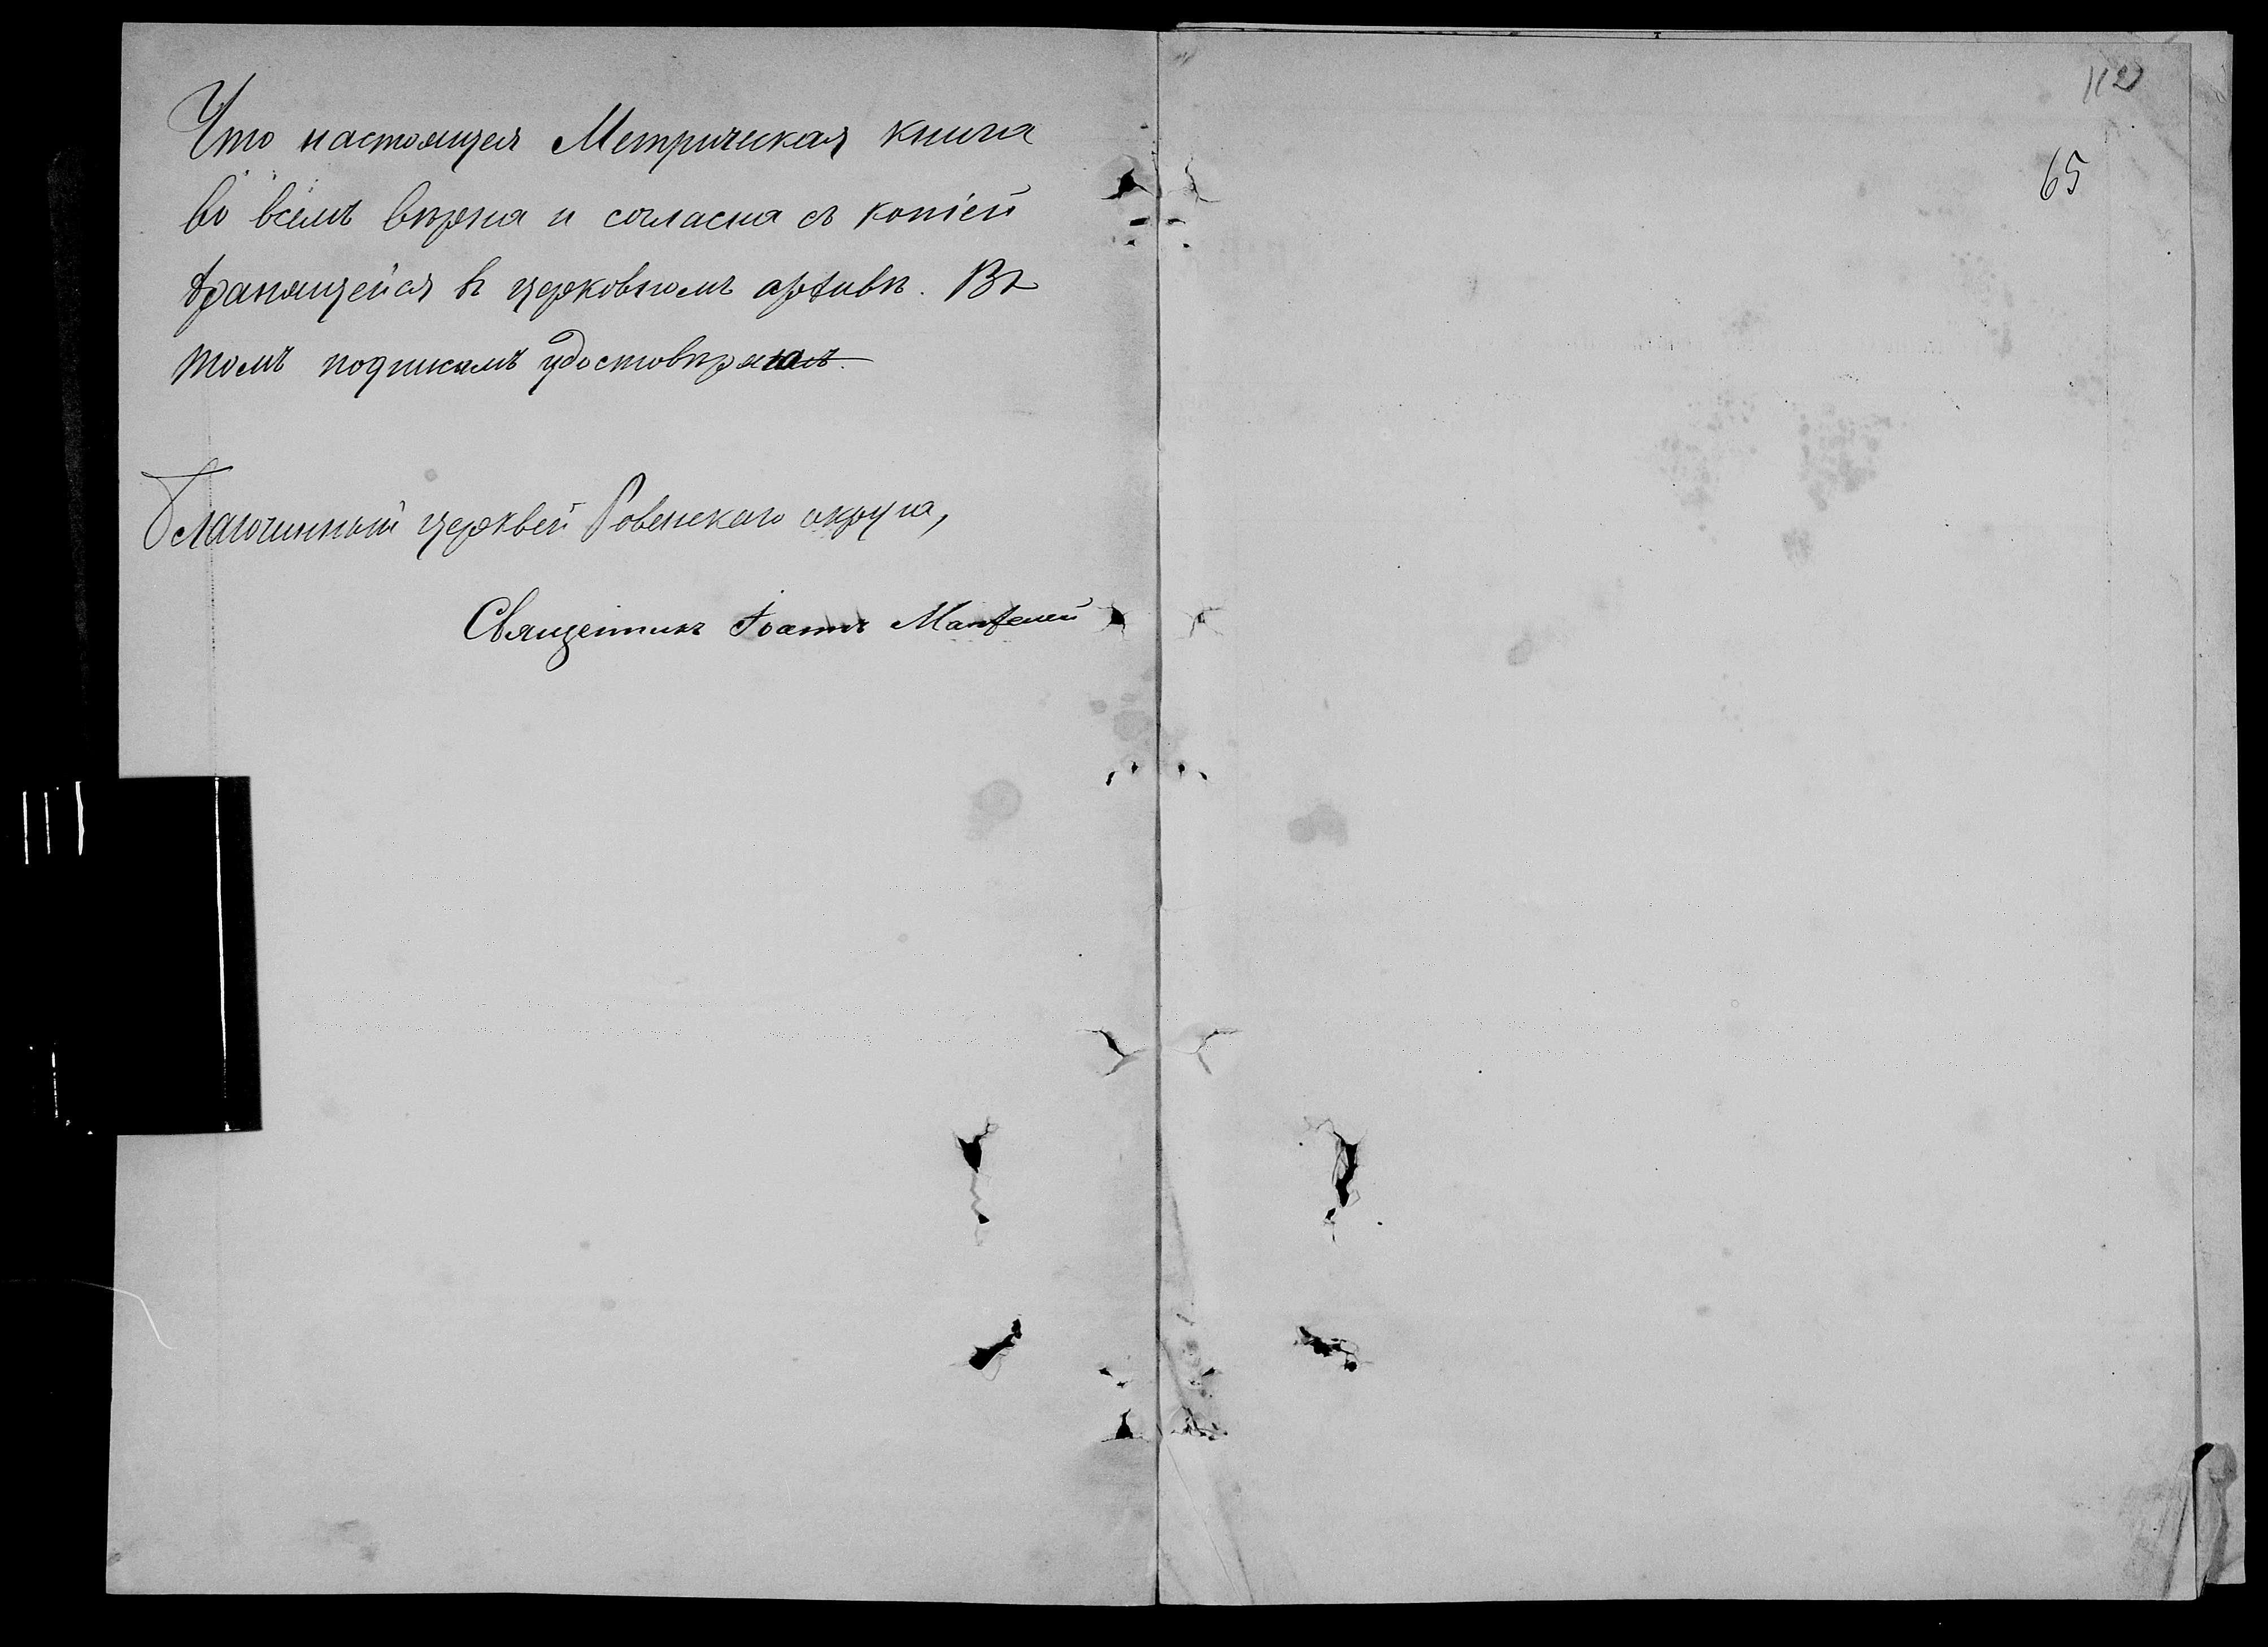 Что настоящея Метрическая книга
во всемъ вѣрна и согласна съ копіей
хранящейся въ церковномъ архивѣ. Въ
томъ подписомъ удостовѣряю.
Благочинный церквей Ровенскаго округа,
Священникъ Іоаннъ
112
65